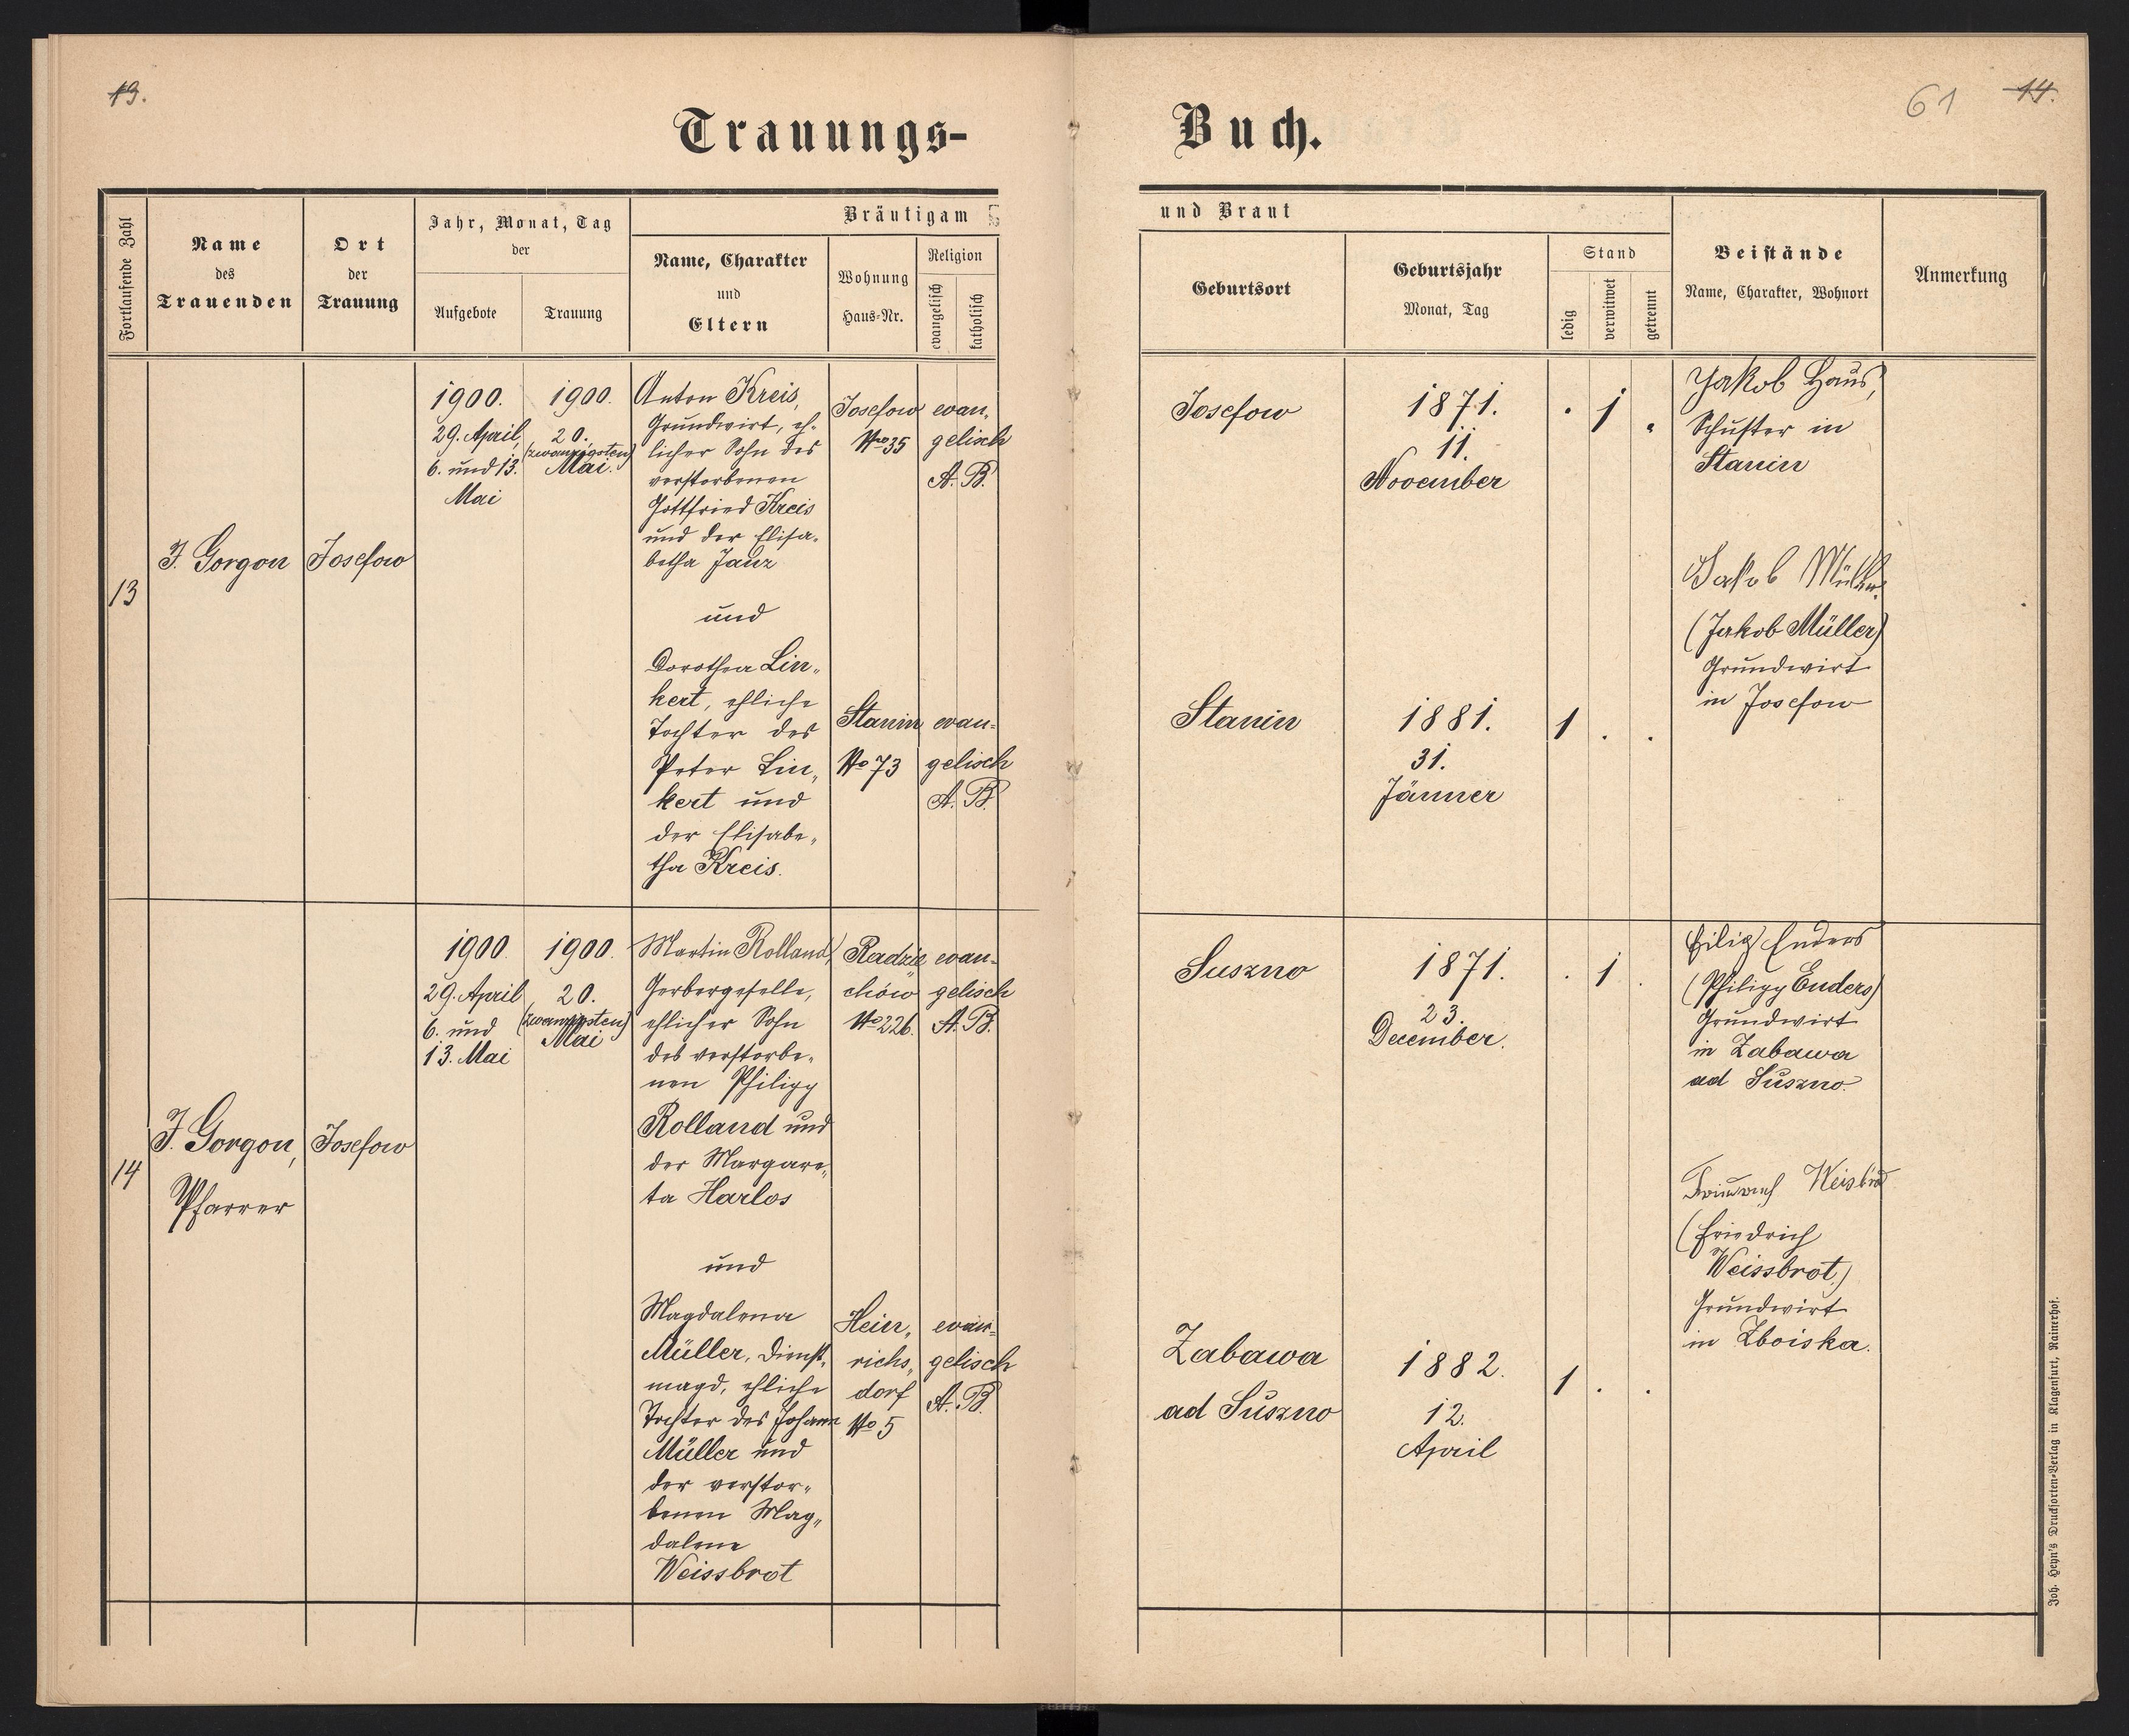 13.
61
14.
Trauungs-
Buch.
Fortlaufende Zahl
Name
des
Trauenden
Ort
der
Trauung
Jahr, Monat, Tag
der
Aufgebote
Trauung
Bräutigam
Name, Charakter
und
Eltern
Wohnung
Haus-Nr.
Religion
evangelisch
katholisch
und Braut
Geburtsort
Geburtsjahr
Monat, Tag
Stand
ledig
verwitwet
getrennt
Beistände
Name, Charakter, Wohnort
Anmerkung
13
J. Gorgon
Josefow
1900.
29. April,
6. und 13.
Mai
1900.
20.
(zwanzigsten)
Mai.
Anton Kreis,
Grundwirt, eh-
licher Sohn des
verstorbenen
Gottfried Kreis
und der Elisa-
betha Janz
und
Dorothea Lin-
kert, ehliche
Tochter des
Peter Lin-
kert und
der Elisabe-
tha Kreis.
Josefow
No 35
evan-
gelisch
A. B.
Stanin
No 73
evan-
gelisch
A. B.
Josefow
1871.
11.
November
. 1 .
Stanin
1881.
31.
Jänner
1 . .
Jakob Haus,
Schuster in
Stanin
Jakob Müller
(Jakob Müller)
Grundwirt
in Josefow
14
J. Gorgon,
Pfarrer
Josefow
1900.
29. April
6. und
13. Mai
1900.
20.
(zwanzigsten)
Mai
Martin Rolland,
Gerbergeselle,
ehlicher Sohn
des verstorbe-
nen Philipp
Rolland und
der Margare-
ta Harlos
und
Magdalena
Müller, Dienst-
magd, ehliche
Tochter des Johann
Müller und
der verstor-
benen Mag-
dalena
Weissbrot
Radzie
chów
No 226.
evan-
gelisch
A. B.
Hein-
richs-
dorf
No 5
evan-
gelisch
A. B.
Suszno
1871.
23.
December.
. 1 .
Zabawa
ad Suszno
1882.
12.
April
1 . .
Filip Enders
(Philipp Enders)
Grundwirt
in Zabawa
ad Suszno.
Weisbrod
(Friedrich
Weissbrot,)
Grundwirt
in Zboiska.
Joh. Heyn's Drucksorten-Verlag in Klagenfurt, Rainerhof.